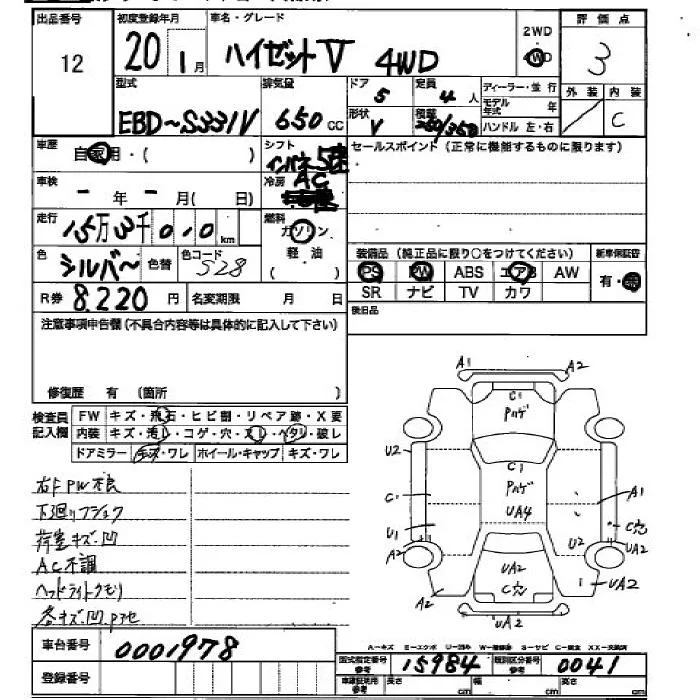 出品番号 初度登録年月 車名・グレード 2WD 評価点
12 20 1月 ハイゼットV 4WD 3
型式 排気量 ドア 定員 ディーラー・並行 外装 内装
EBD-S331V 650cc 5 4人 モデル年式 年
形状 V 積載 250/350 ハンドル 左・右 C
車歴 自家用・( ) シフト インパネ5速 セールスポイント(正常に機能するものに限ります)
車検 - 年 - 月( 日) 冷房 AC
走行 15万3千010km 燃料 ガソリン
色 シルバー 色替 色コード S28 軽油 ( )
装備品(純正品に限り○をつけてください) 新車保証書
PS PW ABS エアB AW 有・無
R券 8,220円 名変期限 月 日 SR ナビ TV カワ
注意事項申告欄(不具合内容等は具体的に記入して下さい) 後日品
修復歴 有 (箇所 )
検査員記入欄 FW キズ・飛石・ヒビ割・リペア跡・X要
内装 キズ・汚れ・コゲ・穴・スレ・ヘタリ・破レ
ドアミラー キズ・ワレ ホイール・キャップ キズ・ワレ
A1 A2
C1
Pハゲ
U2 C1
Pハゲ
C1 A1
UA4
U1 C穴
A2 U2 A2
UA2 UA2
C穴
A2 UA2
右FPW不良
下廻りフショク
荷室キズ.凹
AC不調
ヘッドライトクモリ
各キズ.凹.Pアセ
A-キズ E-エクボ U-凹み W-補修跡 S-サビ C-腐食 XX-交換済
車台番号 0001978
型式指定番号 参考 15984 類別区分番号 参考 0041
登録番号 車庫証明用 参考 長さ cm 幅 cm 高さ cm